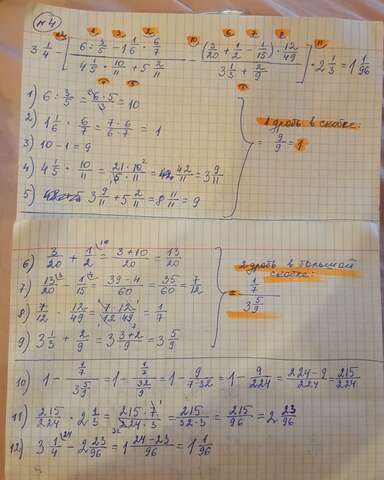 №4
12 1 3 2 10 6 7 8 11
3 1/4 - [ (6 : 3/5 - 1 1/6 · 6/7) / (4 1/5 · 10/11 + 5 2/11) - ((3/20 + 1/2 - 1/15) · 12/49) / (3 1/3 + 2/9) ] · 2 1/3 = 1 1/96
1) 6 : 3/5 = 6·5/3 = 10
2) 1 1/6 · 6/7 = 7·6/6·7 = 1
3) 10 - 1 = 9
4) 4 1/5 · 10/11 = 21·10/5·11 = 42/11 = 3 9/11
5) 3 9/11 + 5 2/11 = 8 11/11 = 9
1 дробь в скобке:
= 9/9 = 1
6) 3/20 + 1/2 = 3+10/20 = 13/20
7) 13/20 - 1/15 = 39-4/60 = 35/60 = 7/12
8) 7/12 · 12/49 = 7·12/12·49 = 1/7
9) 3 1/3 + 2/9 = 3 3+2/9 = 3 5/9
2 дробь в большой
скобке:
= 1/7 / 3 5/9
10) 1 - 1/7 / 3 5/9 = 1 - 1/7 / 32/9 = 1 - 9/7·32 = 1 - 9/224 = 224-9/224 = 215/224
11) 215/224 · 2 1/3 = 215·7/224·3 = 215/32·3 = 215/96 = 2 23/96
12) 3 1/4 - 2 23/96 = 1 24-23/96 = 1 1/96